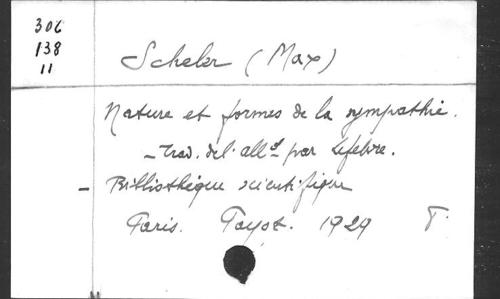 306
138
11
Scheler (Max)
Nature et formes de la sympathie.
- Trad. de l'alld par Lefebvre.
- Bibliothèque scientifique
Paris. Payot. 1929 T.